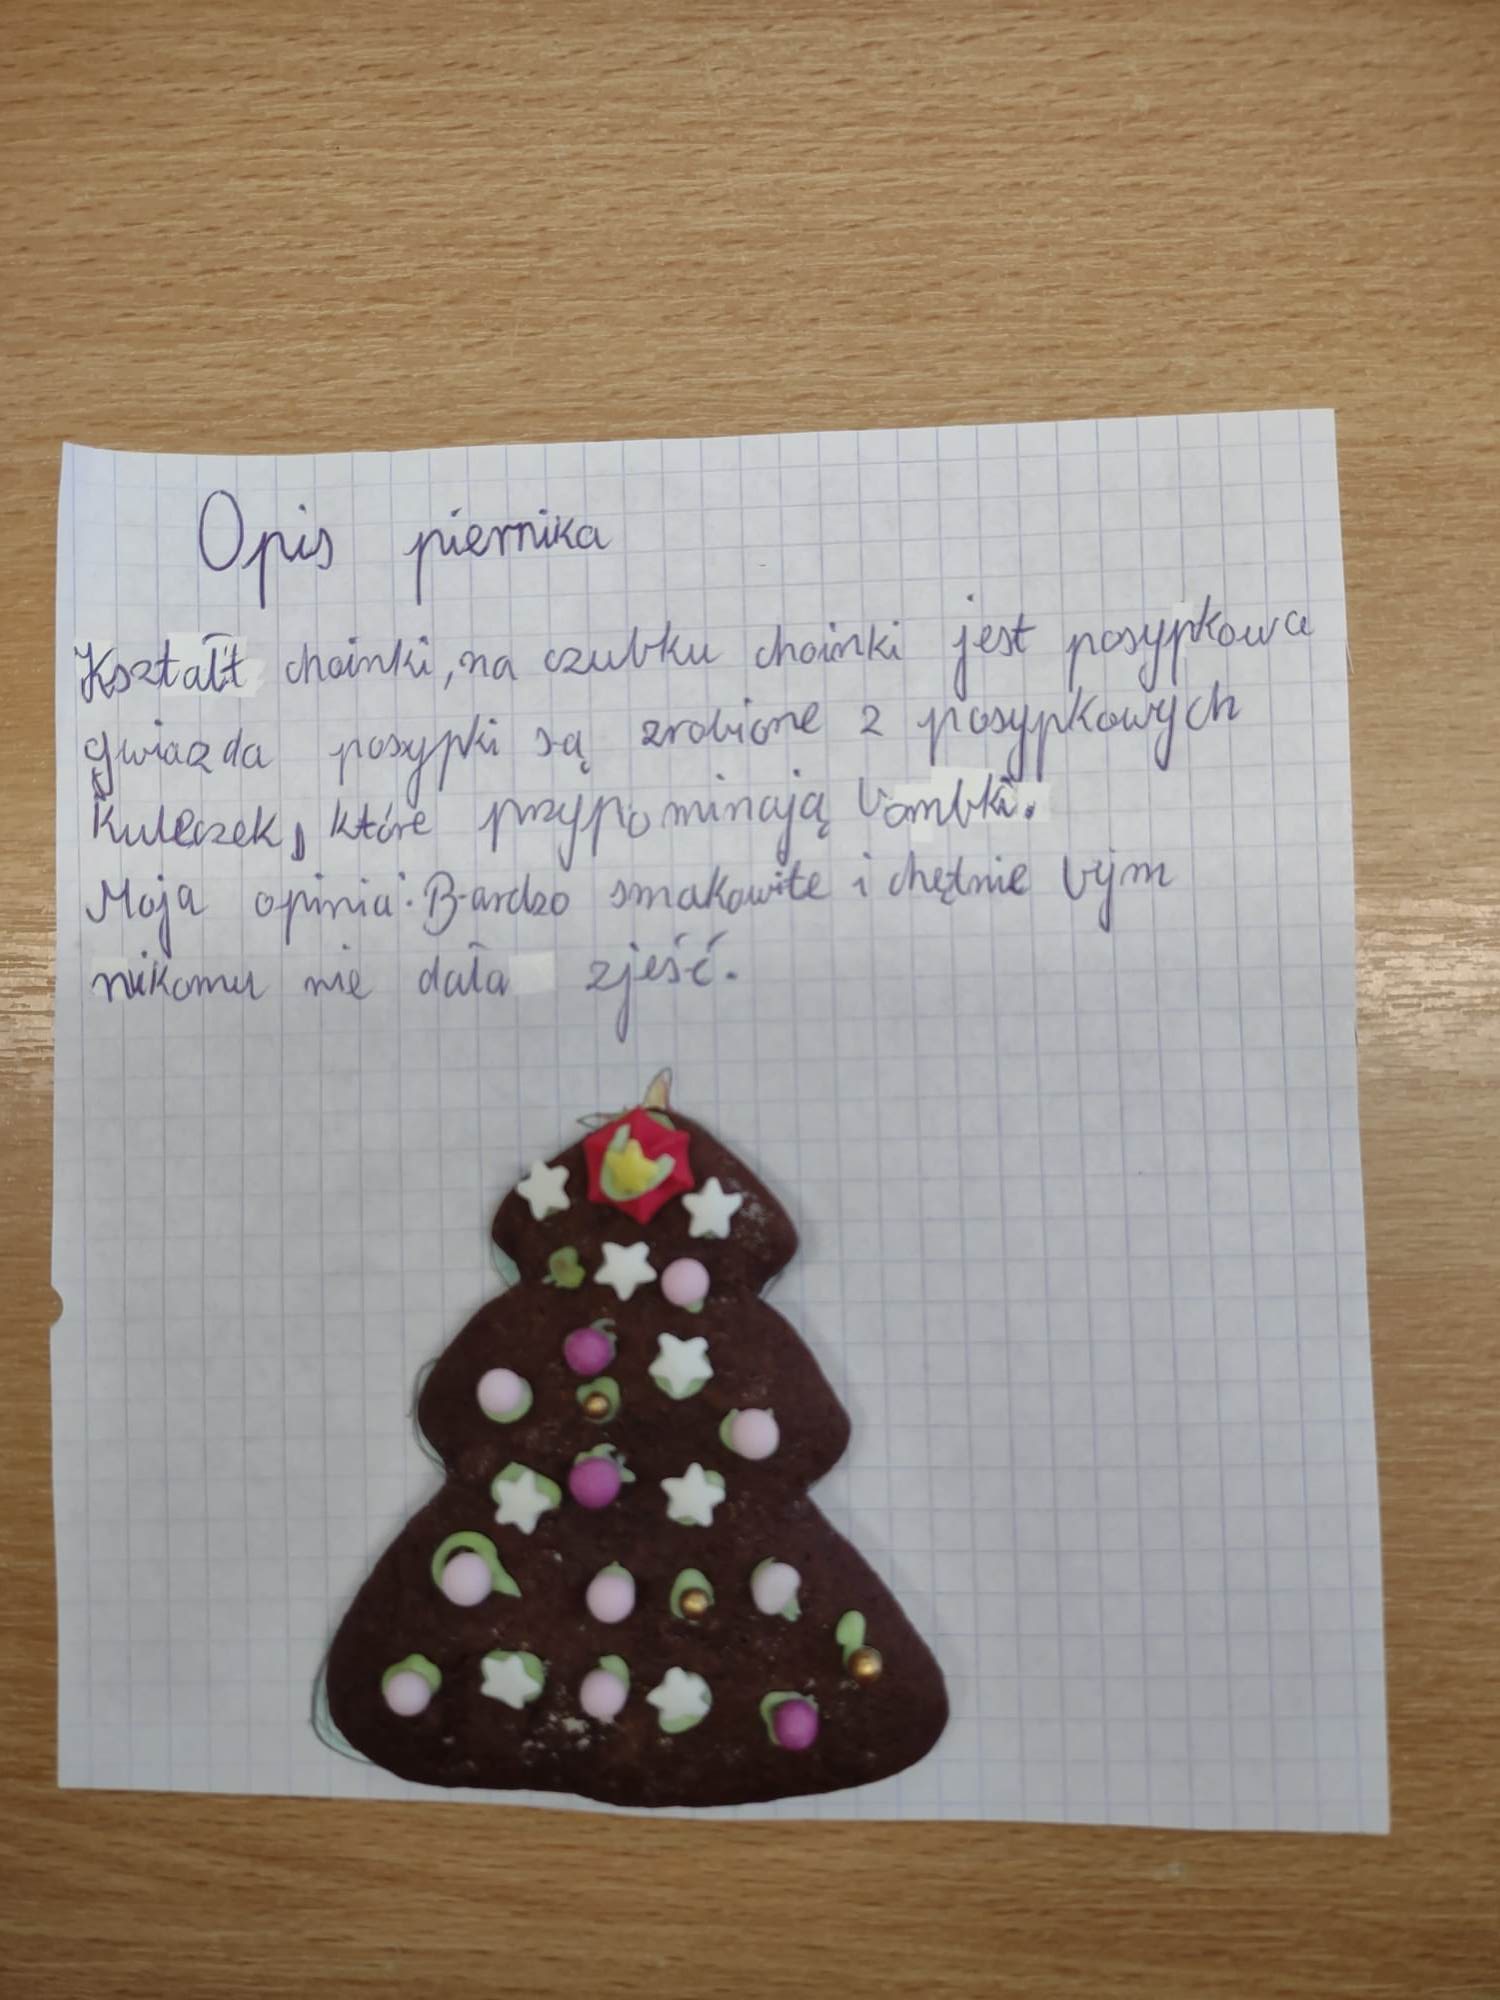 Opis piernika
Kształt choinki, na czubku choinki jest posypkowa
gwiazda posypki są zrobione z posypkowych
kuleczek, które przypominają bombki.
Moja opinia: Bardzo smakowite i chętnie bym
nikomu nie dała zjeść.